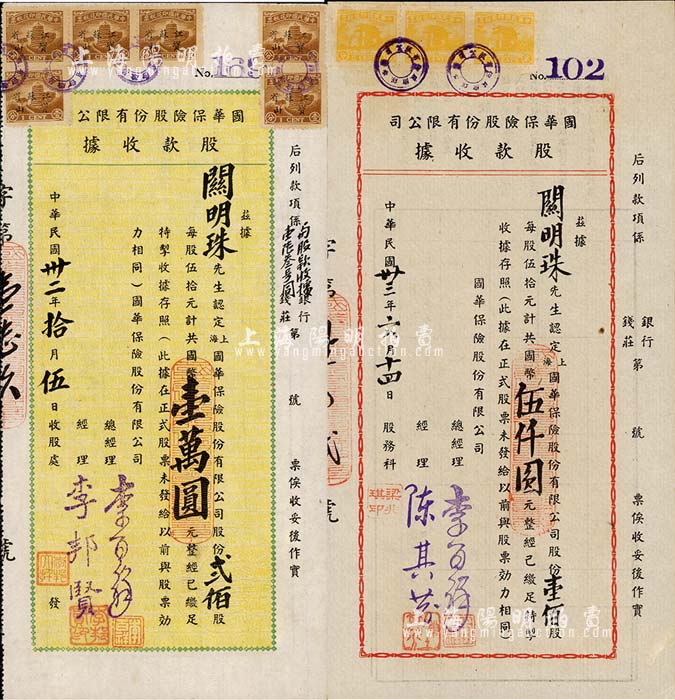 No. 169
國華保險股份有限公
股款收據
茲據
關明珠先生認定上海國華保險股份有限公司股份貳佰股
每股伍拾元計共國幣壹萬圓元整經已繳足
特掣收據存照（此據在正式股票未發給以前與股票効
力相同）國華保險股份有限公司
總經理
經理 李邦賢
中華民國卅二年拾月伍日收股處
發
后列款項係
銀行
錢莊
第 號 票俟收妥後作實
No. 102
國華保險股份有限公司
股款收據
茲據
關明珠先生認定上海國華保險股份有限公司股份壹佰股
每股伍拾元計共國幣伍仟圓元整經已繳足特掣
收據存照（此據在正式股票未發給以前與股票効力相同）
國華保險股份有限公司
總經理
經理 陳其
中華民國卅三年六月十四日 股務科
后列款項係
銀行
錢莊
第 號 票俟收妥後作實
1 CENT
上海陽明拍賣
www.yangmingauction.com